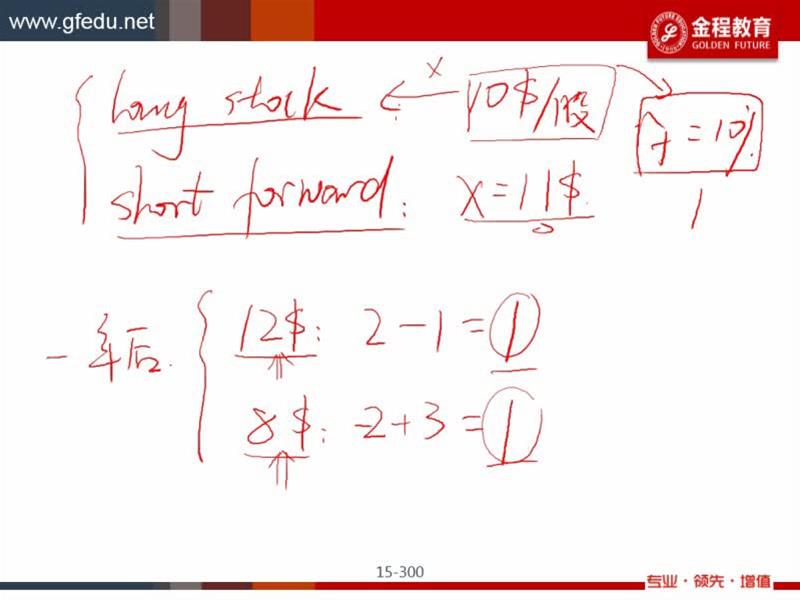 www.gfedu.net
金程教育
GOLDEN FUTURE
long stock ← x 10$/股
rf = 10%
short forward: x = 11$
1
一年后
12$: 2 - 1 = 1
8$: -2 + 3 = 1
15-300
专业·领先·增值